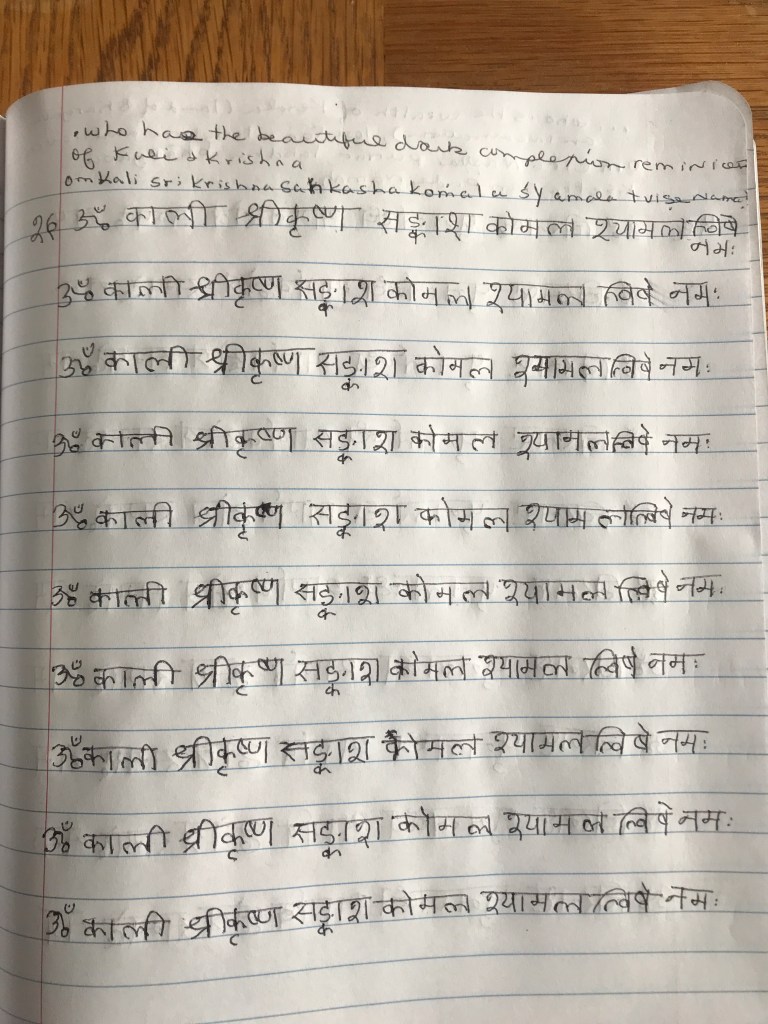 . who has the beautiful dark complexion reminices
of Kali & Krishna
om Kali sri Krishna Sankasha Komala syamala tvise Namaḥ
26 ॐ काली श्रीकृष्ण सङ्काश कोमल श्यामल त्विषे
नमः
ॐ काली श्रीकृष्ण सङ्काश कोमल श्यामल त्विषे नमः
ॐ काली श्रीकृष्ण सङ्काश कोमल श्यामल त्विषे नमः
ॐ काली श्रीकृष्ण सङ्काश कोमल श्यामल त्विषे नमः
ॐ काली श्रीकृष्ण सङ्काश कोमल श्यामल त्विषे नमः
ॐ काली श्रीकृष्ण सङ्काश कोमल श्यामल त्विषे नमः
ॐ काली श्रीकृष्ण सङ्काश कोमल श्यामल त्विषे नमः
ॐ काली श्रीकृष्ण सङ्काश कोमल श्यामल त्विषे नमः
ॐ काली श्रीकृष्ण सङ्काश कोमल श्यामल त्विषे नमः
ॐ काली श्रीकृष्ण सङ्काश कोमल श्यामल त्विषे नमः